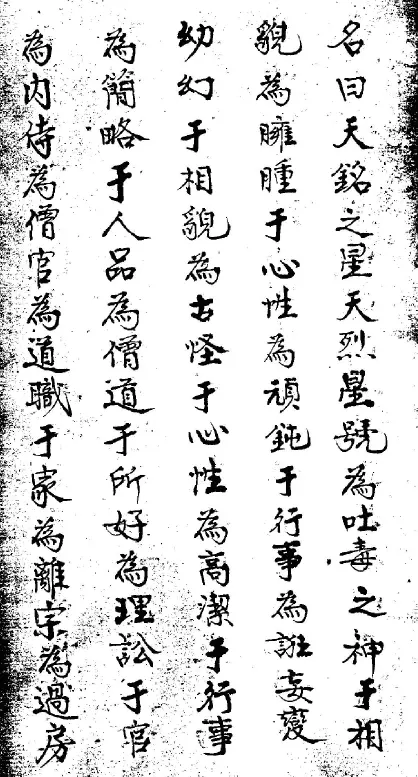 名曰天銘之星天烈星號為吐毒之神于相
貌為臃腫于心性為頑鈍于行事為誑妄變
幼幻于相貌為古怪于心性為高潔于行事
為簡略于人品為僧道于所好為理訟于官
為内侍為僧官為道職于家為離宗為過房